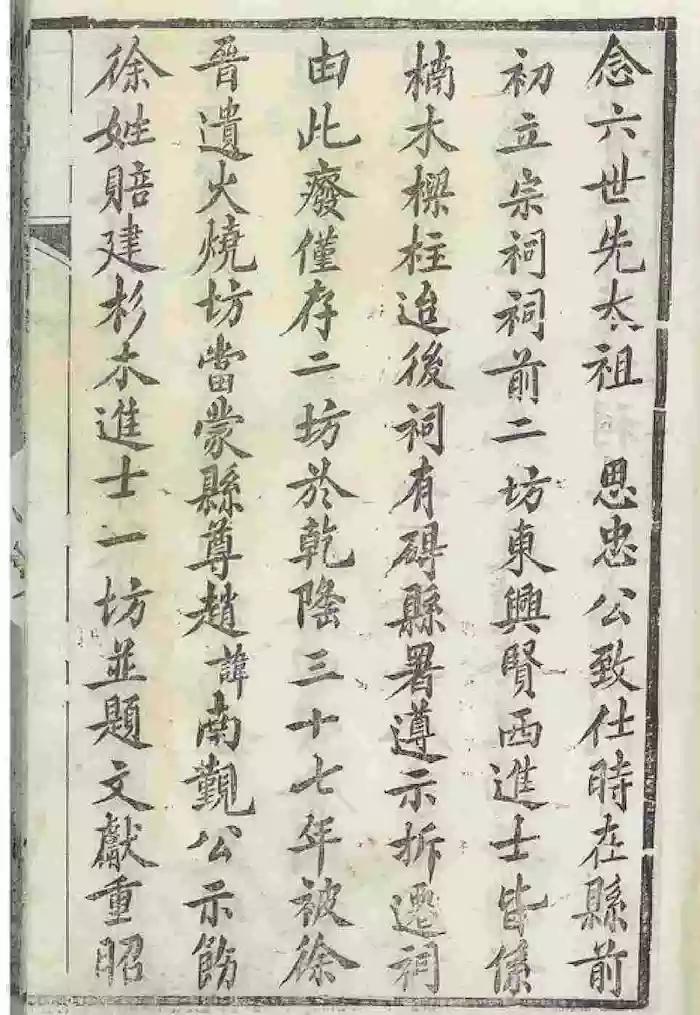 念六世先太祖 思忠公致仕時在縣前
初立宗祠祠前二坊東興賢西進士皆係
楠木樑柱迨後祠有碍縣署遵示拆遷祠
由此廢僅存二坊於乾隆三十七年被徐
晉遺火燒坊當蒙縣尊趙諱南覲公示飭
徐姓賠建杉木進士一坊並題文獻重昭